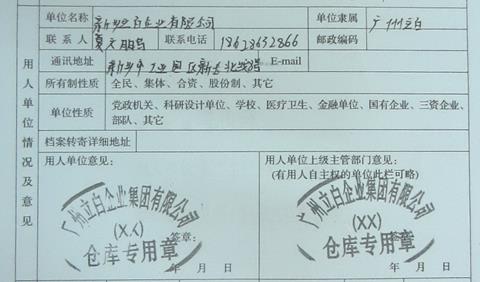 单位名称 新乡立白企业有限公司 单位隶属 广州立白
联系人 夏 联系电话 18628652866 邮政编码
通讯地址 新乡市工业园区新 E-mail
所有制性质 全民、集体、合资、股份制、其它
单位性质 党政机关、科研设计单位、学校、医疗卫生、金融单位、国有企业、三资企业、
部队、其它
档案转寄详细地址
用人单位情况及意见
用人单位意见:
广州立白企业集团有限公司
(XX)
仓库专用章
签章:
年 月 日
用人单位上级主管部门意见:
(有用人自主权的单位此栏可略)
广州立白企业集团有限公司
(XX)
仓库专用章
签章:
年 月 日